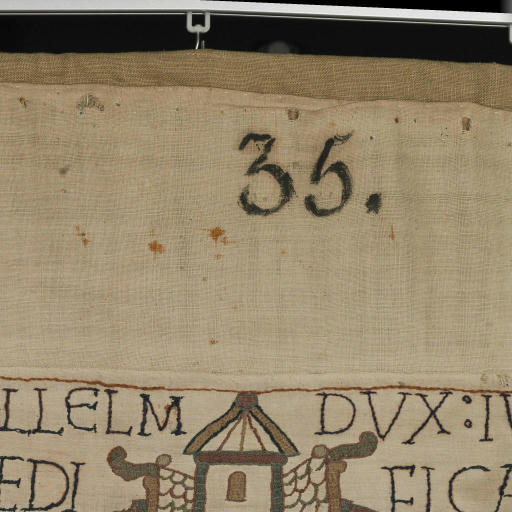 35.
LLELM DVX:
EDI FICA